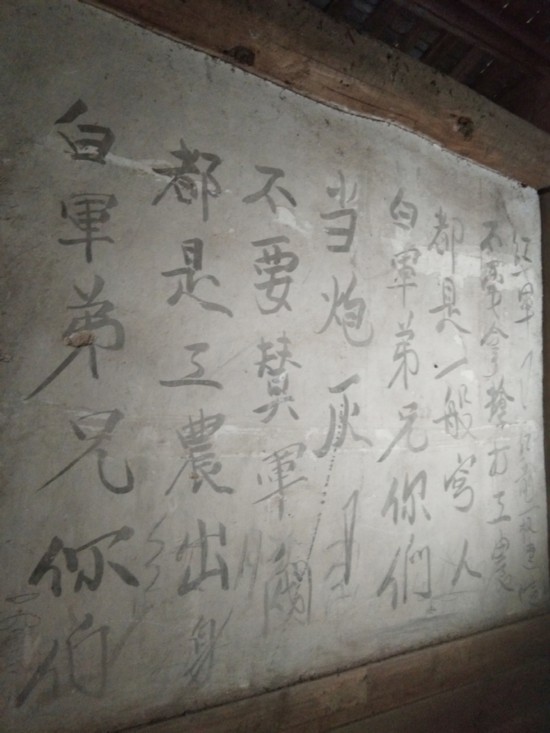 白軍弟兄你们
都是工農出身
不要替軍閥
当炮灰
白軍弟兄你們
都是一般穷人
不要拿打工農
红軍